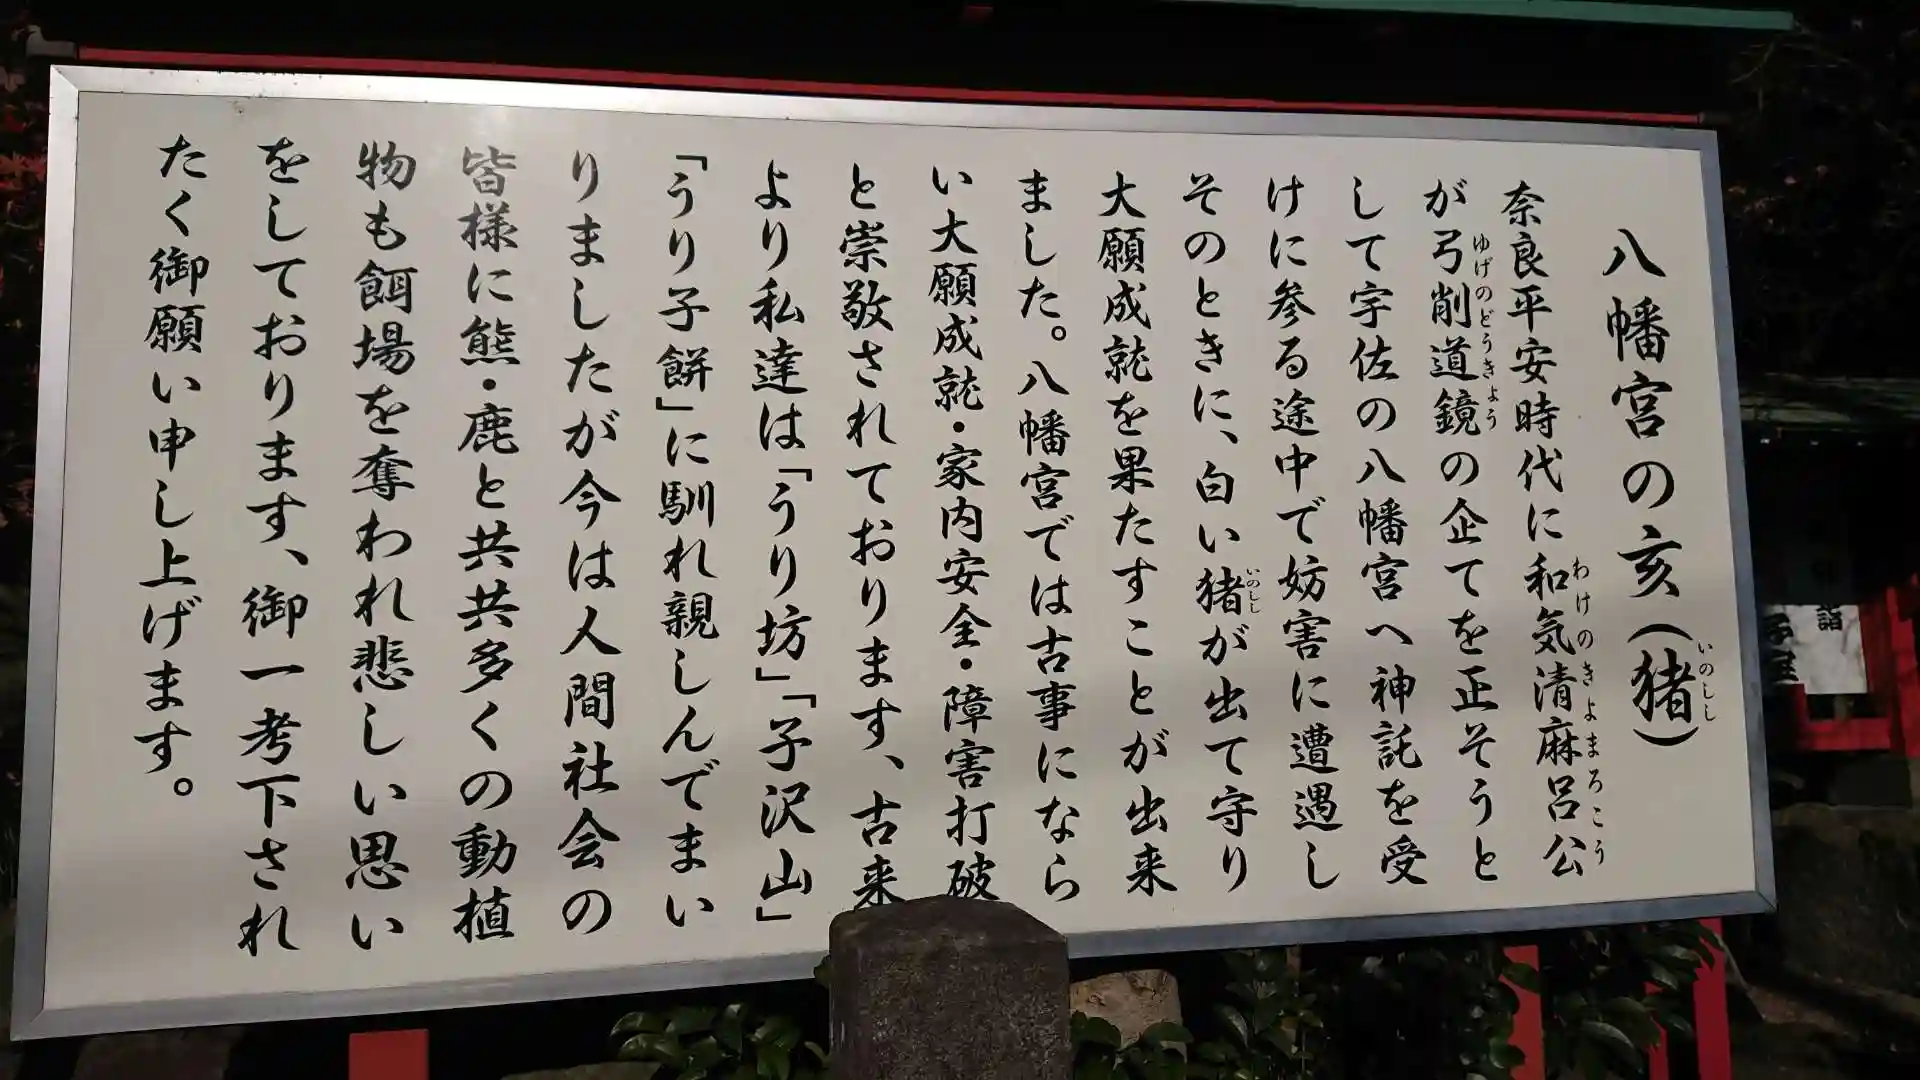 八幡宮の亥(猪)
いのしし
奈良平安時代に和気清麻呂公
わけのきよまろこう
が弓削道鏡の企てを正そうと
ゆげのどうきょう
して宇佐の八幡宮へ神託を受
けに参る途中で妨害に遭遇し
そのときに、白い猪が出て守り
いのしし
大願成就を果たすことが出来
ました。八幡宮では古事になら
い大願成就・家内安全・障害打破
と崇敬されております、古来
より私達は「うり坊」「子沢山」
「うり子餅」に馴れ親しんでまい
りましたが今は人間社会の
皆様に熊・鹿と共共多くの動植
物も餌場を奪われ悲しい思い
をしております、御一考下され
たく御願い申し上げます。
詣